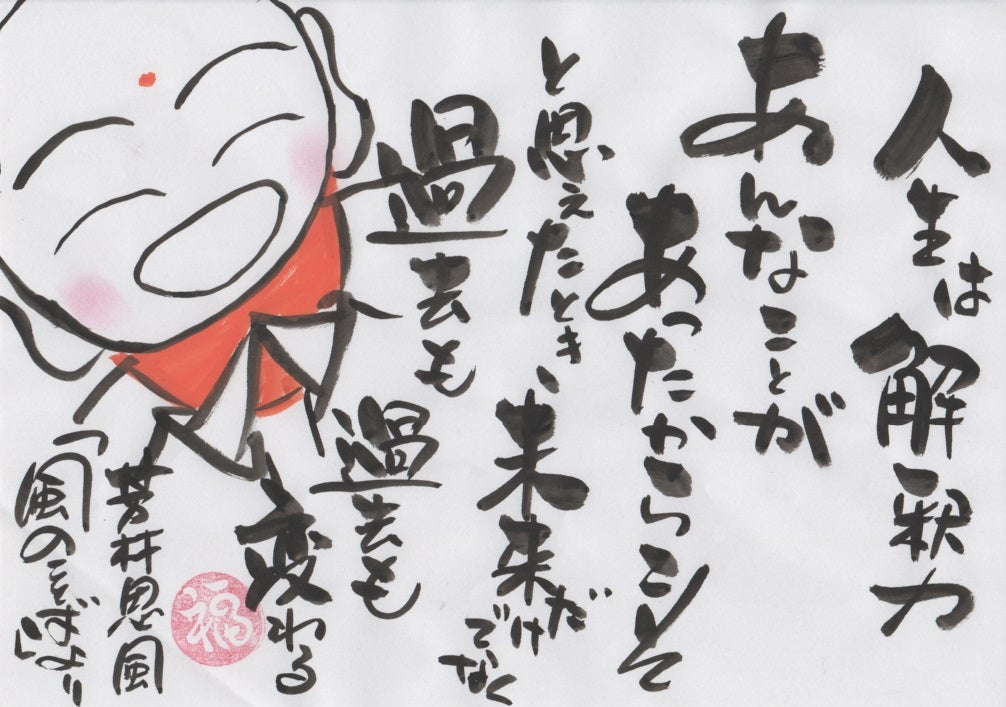 人生は解釈力
あんなことが
あったからこそ
と思えたとき、
未来だけでなく
過去も
過去も
変わる
芳村思風
「風のことばより」
福